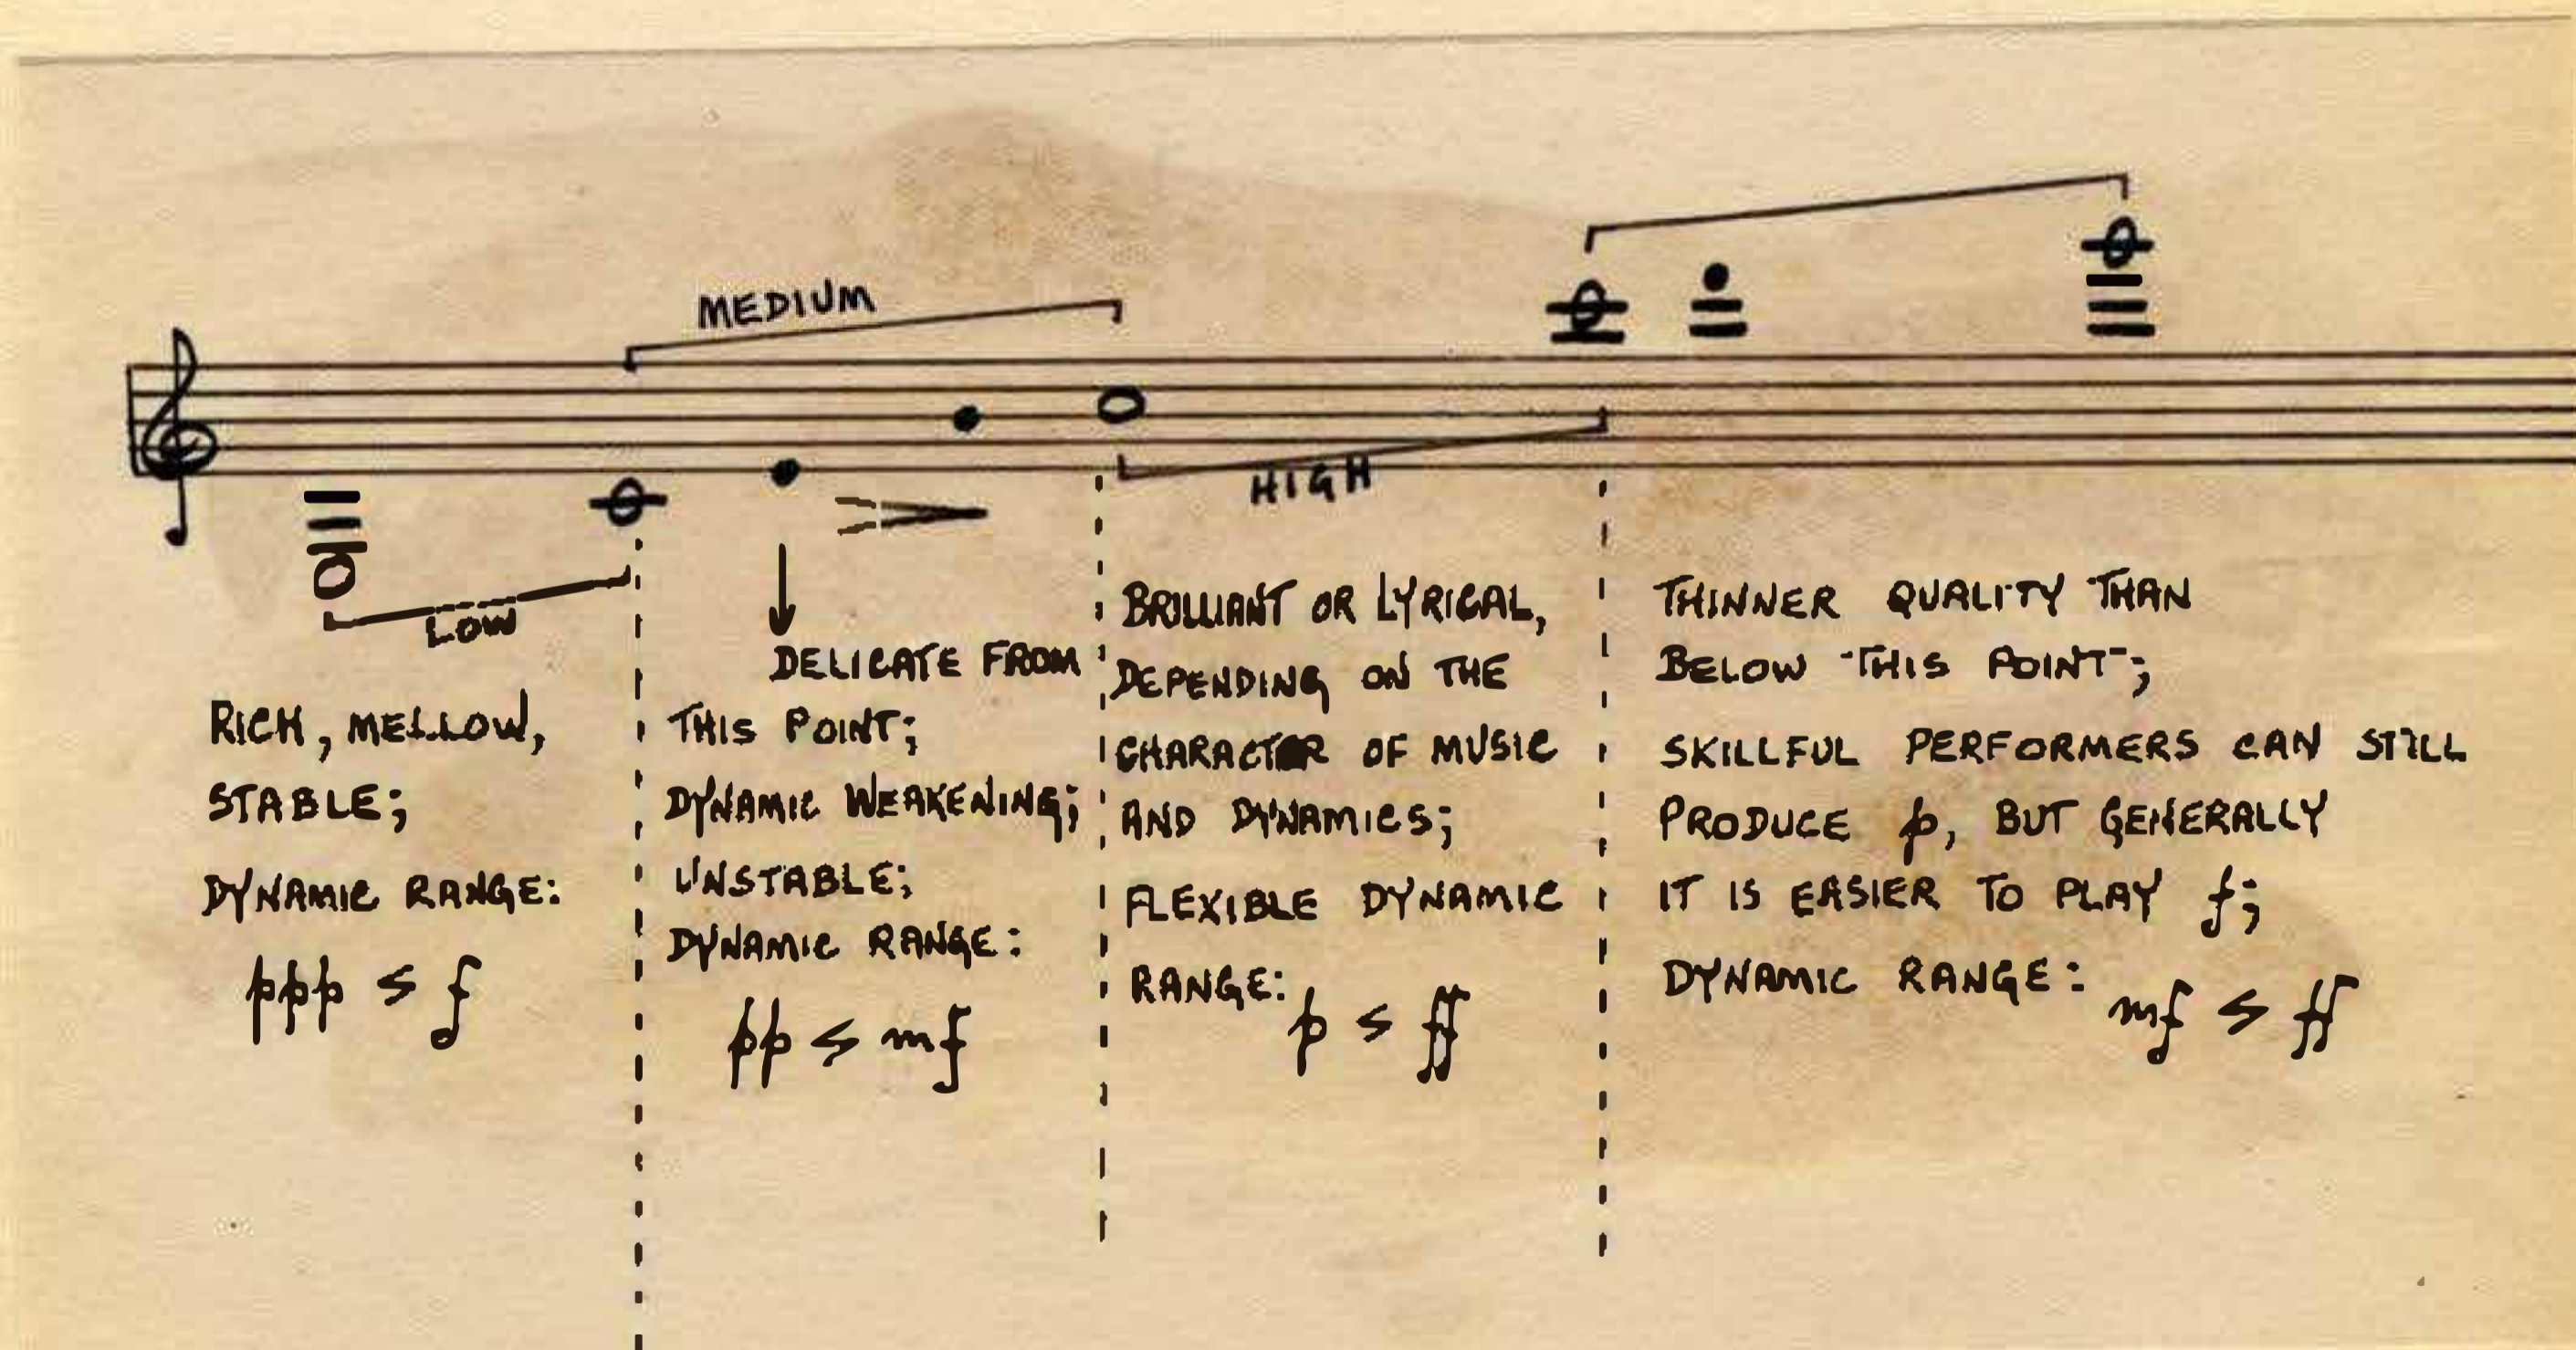 MEDIUM
HIGH
LOW
RICH, MELLOW,
STABLE;
DYNAMIC RANGE:
ppp ≤ f
DELICATE FROM
THIS POINT;
DYNAMIC WEAKENING;
UNSTABLE;
DYNAMIC RANGE:
pp ≤ mf
BRILLIANT OR LYRICAL,
DEPENDING ON THE
CHARACTER OF MUSIC
AND DYNAMICS;
FLEXIBLE DYNAMIC
RANGE: p ≤ ff
THINNER QUALITY THAN
BELOW THIS POINT;
SKILLFUL PERFORMERS CAN STILL
PRODUCE p, BUT GENERALLY
IT IS EASIER TO PLAY f;
DYNAMIC RANGE: mf ≤ ff